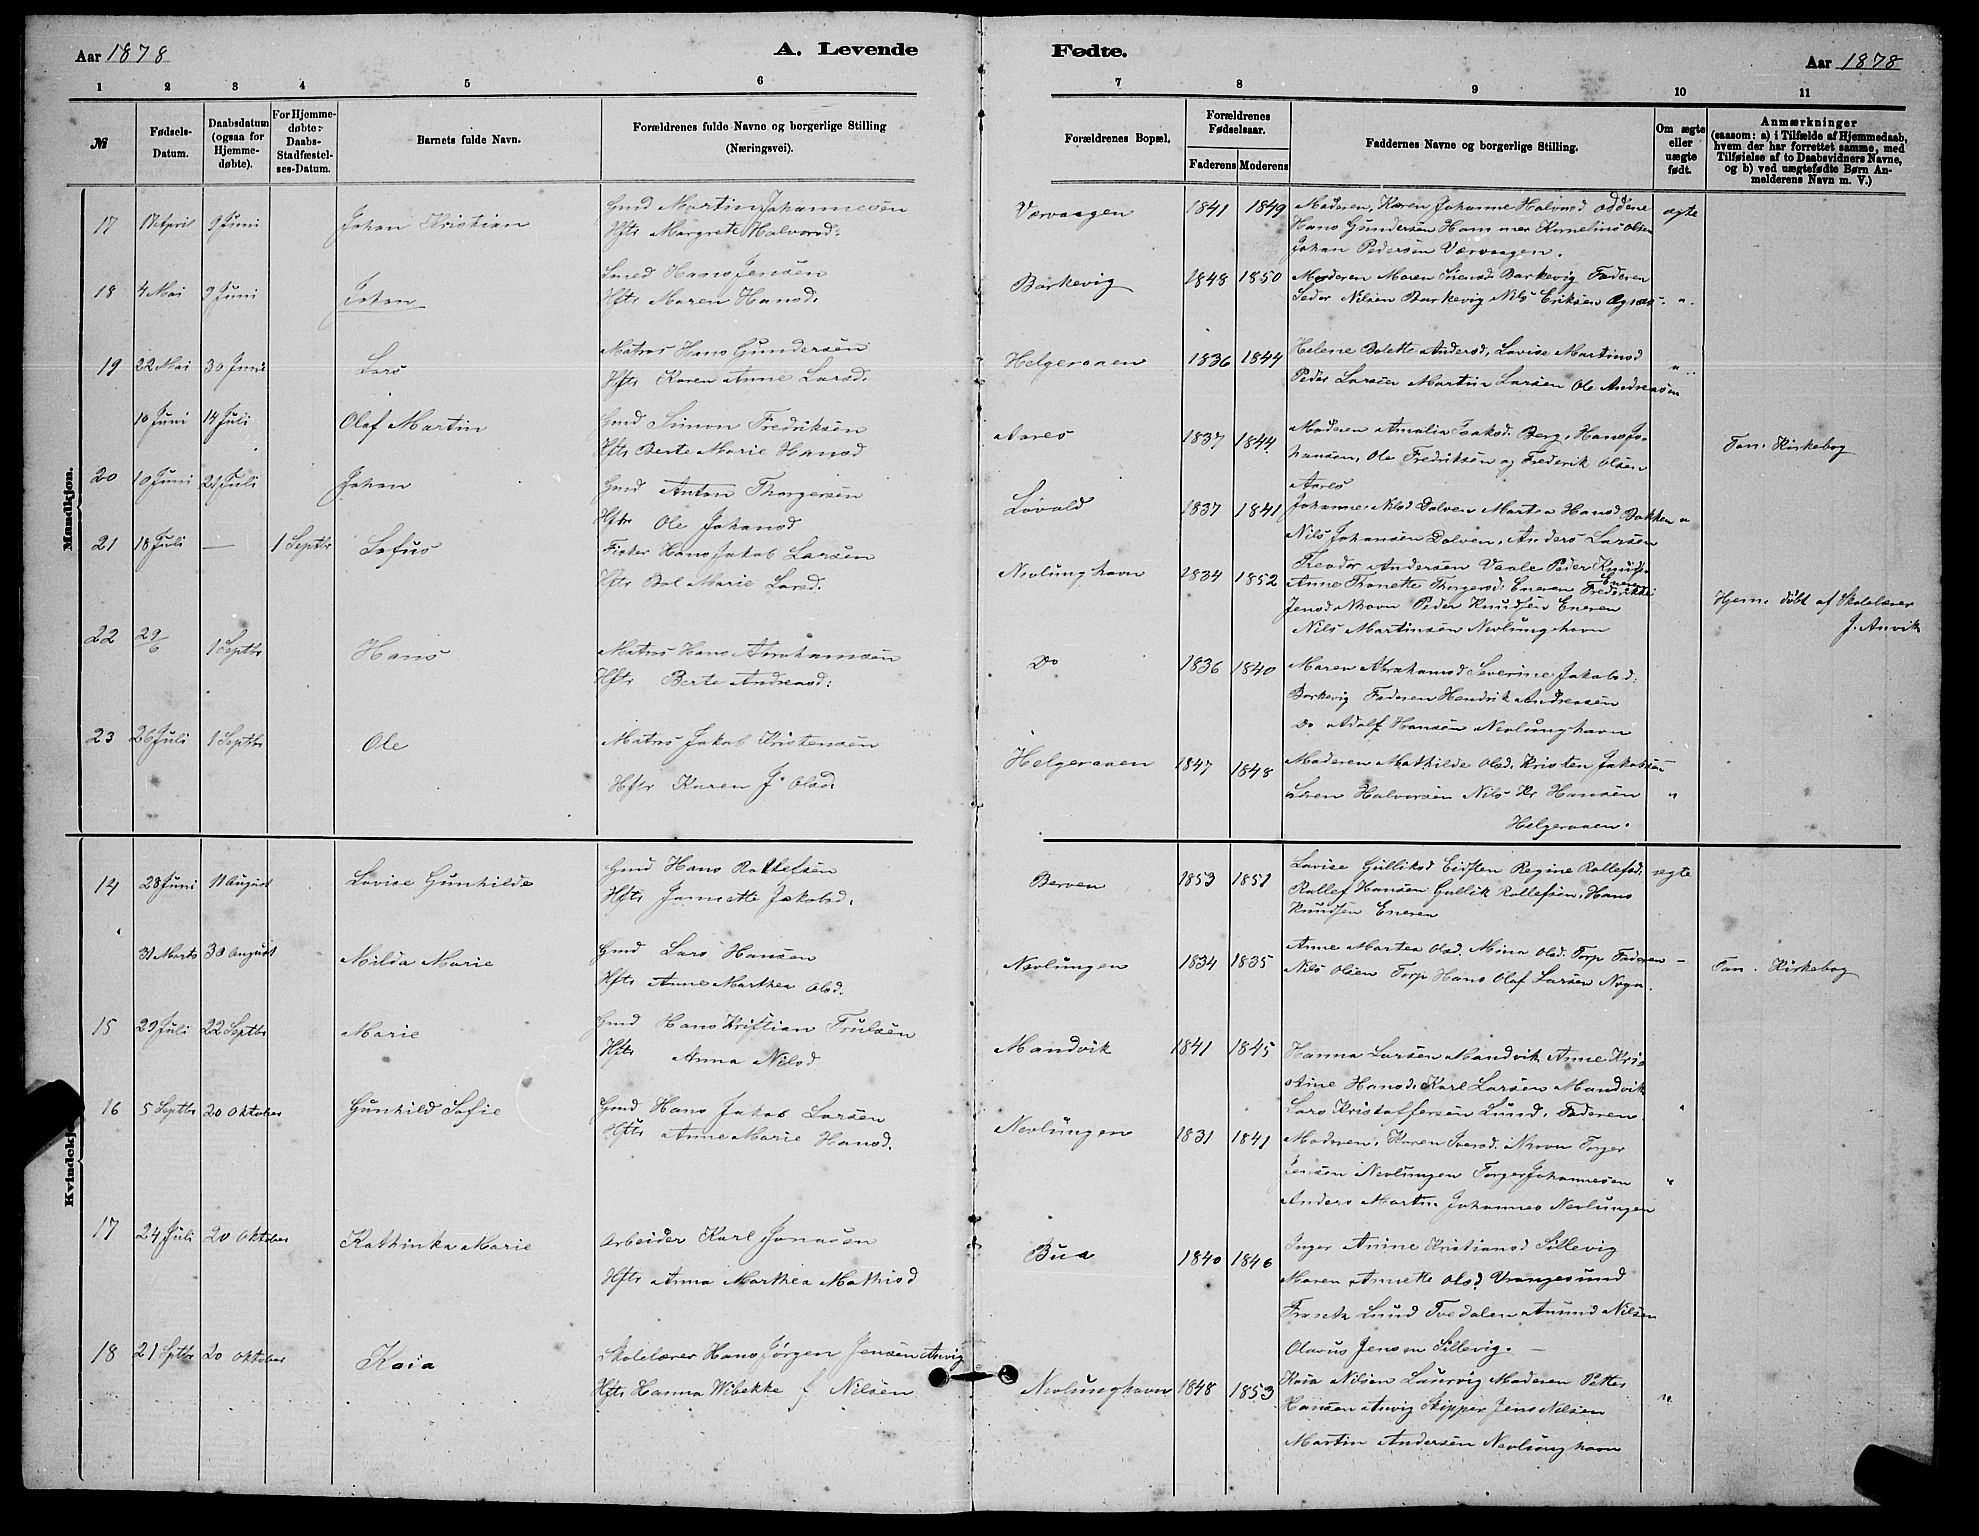 Aar 1878
A. Levende
Fødte.
Aar 1878
1 2 3 4 5 6 7 8 9 10 11
№
Fødsels-Datum.
Daabsdatum (ogsaa for Hjemmedøbte).
For Hjemmedøbte: Daabs-Stadfæstelses-Datum.
Barnets fulde Navn.
Forældrenes fulde Navne og borgerlige Stilling (Næringsvei).
Forældrenes Bopæl.
Forældrenes Fødselsaar.
Faderens Moderens
Faddernes Navne og borgerlige Stilling.
Om ægte eller uægte født.
Anmærkninger
(saasom: a) i Tilfælde af Hjemmedaab, hvem der har forrettet samme, med Tilføielse af to Daabsvidners Navne, og b) ved uægtefødte Børn Anmelderens Navn m. V.)
Mandkjøn.
17 17 April 9 Juni Johan Kristian
Gmd Martin Johannesen
Hftr Margrete Halvorsd:
Værvaagen 1841 1849
Moderen, Karen Johanne Halvorsd Oddene
Hans Gundersen Hammer Kornelius Olsen
Johan Pedersen Værvaagen.
ægte
18 4 Mai 9 Juni Johan
Smed Hans Jensen
Hftr Maren Hansd.
Barkevig 1848 1850
Moderen Maren Sørensd Barkevig Faderen
Peder Nilsen Barkevig Nils Eriksen Agnæs
"
19 22 Mai 30 Juni Lars
Matros Hans Gundersen
Hftr Karen Anne Larsd.
Helgeraaen 1836 1844
Helene Bolette Andersd, Lovise Martinsd
Peder Larsen Martin Larsen Ole Andreasen
"
10 Juni 14 Juli Olaf Martin
Gmd Simon Fredriksen
Hftr Berte Marie Hansd
Aarøs 1837 1844
Moderen Amalia Isaksd. Berg, Hans Johansen, Ole Fredriksen og Frederik Olsen
Aarøs
Tan. Kirkebog
20 10 Juni 21 Juli Johan
Gmd Anton Thorgersen
Hftr Ole Johansd
Løvald 1837 1841
Johanne Nilsd Dolven Marte Hansd Bakken
Nils Johansen Dolven, Anders Larsen
"
21 18 Juli — 1 Septbr Sofus
Fisker Hans Jakob Larsen
Hftr Bol Marie Larsd.
Nevlunghavn 1834 1852
Teodor Andersen Vaale Peder Knuds.
Anne Tronette Thorgersd. Eneren Fredrikke
Jensd Mkovn Peder Knudsen Eneren
Nils Martinsen Nevlunghavn
Hjem. døbt af Skolelærer
J. Anvik
22 29/6 1 Septbr Hans
Matros Hans Abrahamsen
Hftr Berte Andreasd:
Do 1836 1840
Maren Abrahamsd Severine Jakobsd.
Barkevig Faderen Hendrik Andreasen
Do Adolf Hansen Nevlunghavn
23 26 Juli 1 Septbr Ole
Matros Jakob Kristensen
Hftr Karen J. Olsd.
Helgeraaen 1847 1848
Moderen Mathilde Olsd. Kristen Jakobsen
Søren Halvorsen Nils Kr Hansen
Helgeraaen.
"
Kvindekjøn
14 28 Juni 11 August Lovise Gunhilde
Gmd Hans Rollefsen
Hftr Jannette Jakobsd.
Berven 1853 1851
Lovise Gulliksd Eidsten Regine Rollefsd.
Rollef Hansen Gullik Rollefsen, Hans
Knudsen Eneren
ægte
31 Marts 30 August Milda Marie
Gmd Lars Hansen
Hftr Anne Marthea Olsd.
Nevlungen 1834 1835
Anne Martea Olsd. Mina Olsd. Torp Faderen
Nils Olsen Torp Hans Olaf Larsen
Tan. Kirkebog
15 29 Juli 22 Septbr Marie
Gmd Hans Kristian Trulsen
Hftr Anna Nilsd
Mandvik 1841 1845
Hanna Larsen Mandvik Anne Kristine Hansd. Karl Larsen Mandvik
Lars Kristoffersen Lund. Faderen.
"
16 5 Septbr 20 Oktober Gunhild Sofie
Gmd Hans Jakob Larsen
Hftr Anne Marie Hansd.
Nevlungen 1831 1841
Moderen. Karen Iversd. Torger
Jensen Nevlungen Torger Johannesen
Anders Martin. Johannes Nevlungen
"
17 24 Juli 20 Oktober Kathinka Marie
Arbeider Karl Jonasen
Hftr Anna Marthea Mathisd
Bua 1840 1846
Inger Anne Kristiansd Sillevig
Maren Annette Olsd Vrangesund
Frants Lund Tvedalen Amund Nilsen
Olavus Jensen Sillevig. —
18 21 Sptbr 20 Oktober Kaia
Skolelærer Hans Jørgen Jensen Anvig
Hftr Hanna Wibekke f. Nilsen
Nevlunghavn 1848 1853
Kaia Nilsen Laurvig Moderen Petter
Hansen Anvig Skipper Jens Nilsen
Martin Andersen Nevlunghavn
"